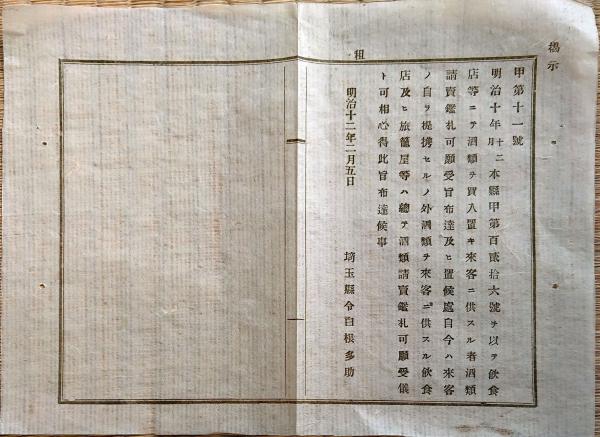 揭示
租
甲第十一號
明治十年十二月本縣甲第百貳拾六號ヲ以テ飮食
店等ニテ酒類ヲ買入置キ來客ニ供スル者酒類
請賣鑑札可願受旨布達及ヒ置候處自今ハ來客
ノ自ヲ提携セルノ外酒類ヲ來客ニ供スル飮食
店及ヒ旅籠屋等ハ總テ酒類請賣鑑札可願受儀
ト可相心得此旨布達候事
明治十二年二月五日
埼玉縣令白根多助